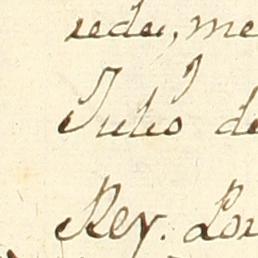 rede, me
Julio de
Rey. Lor